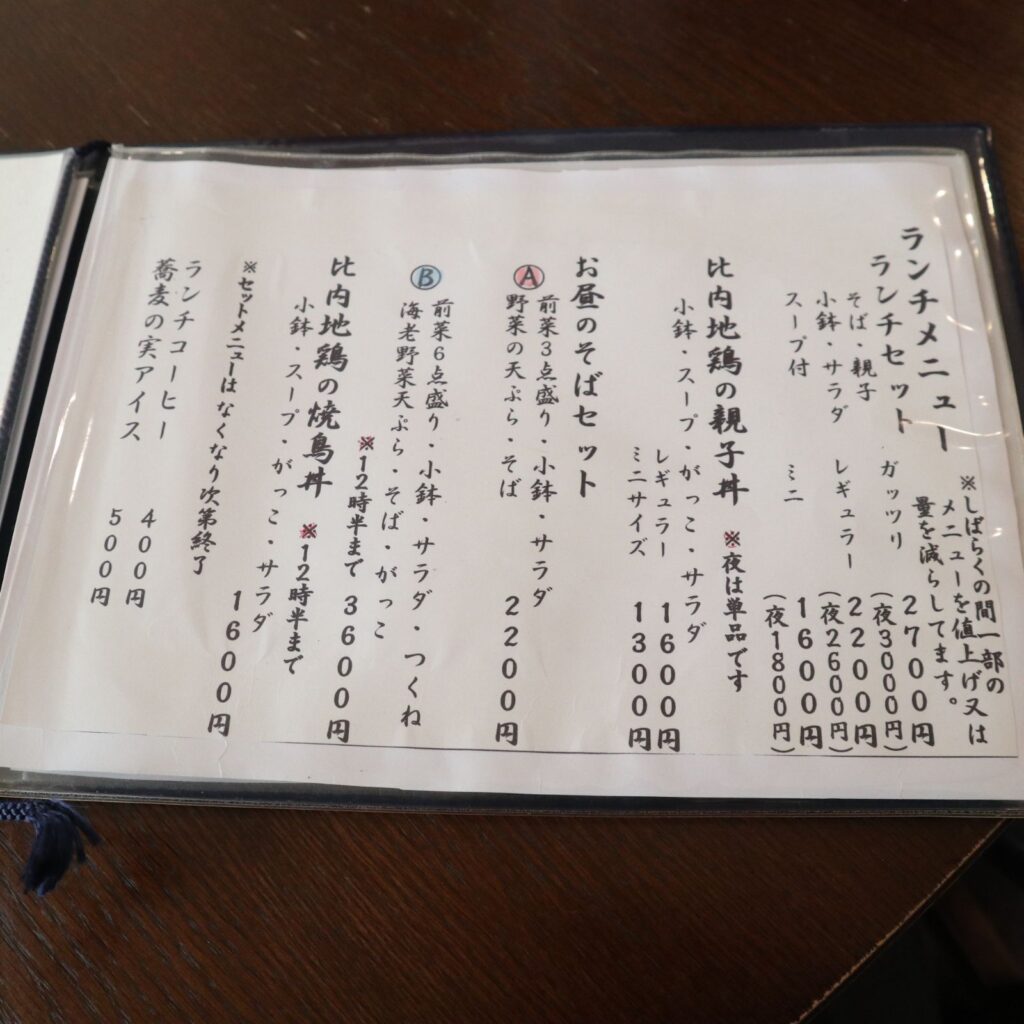 ランチメニュー
※しばらくの間一部の
メニューを値上げ又は
量を減らしてます。
ランチセット ガッツリ 2700円
(夜3000円)
そば・親子
小鉢・サラダ レギュラー 2200円
(夜2600円)
スープ付 ミニ 1600円
(夜1800円)
比内地鶏の親子丼 ※夜は単品です
小鉢・スープ・がっこ・サラダ
レギュラー 1600円
ミニサイズ 1300円
お昼のそばセット
A 前菜3点盛り・小鉢・サラダ
野菜の天ぷら・そば 2200円
B 前菜6点盛り・小鉢・サラダ・つくね
海老野菜天ぷら・そば・がっこ
※12時半まで 3600円
比内地鶏の焼鳥丼 ※12時半まで
小鉢・スープ・がっこ・サラダ
1600円
※セットメニューはなくなり次第終了
ランチコーヒー 400円
蕎麦の実アイス 500円